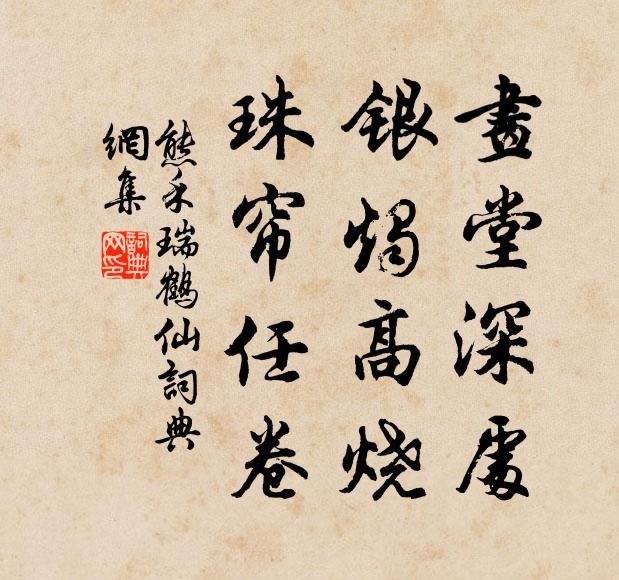 畫堂深處
銀燭高燒
珠帘任卷
熊禾瑞鶴仙詞典
網集
詞典網印